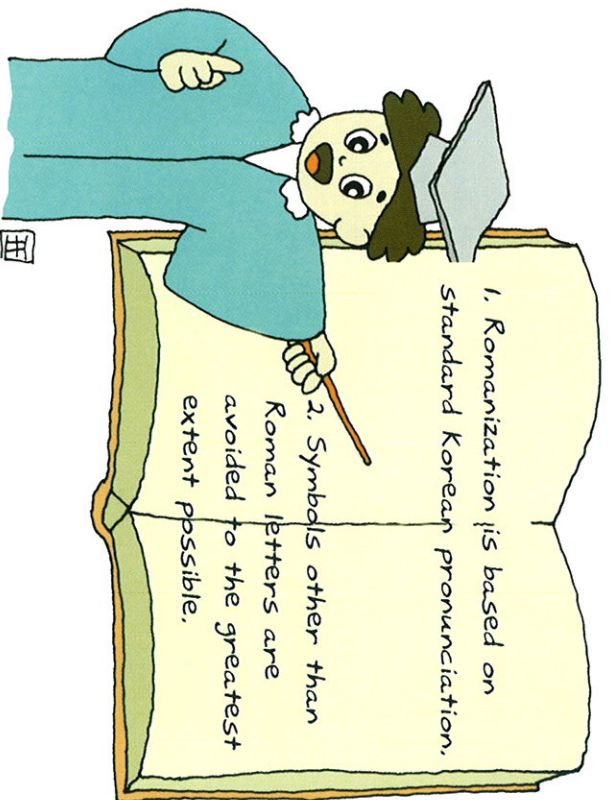 1. Romanization is based on
standard Korean pronunciation.
2. Symbols other than
Roman letters are
avoided to the greatest
extent possible.